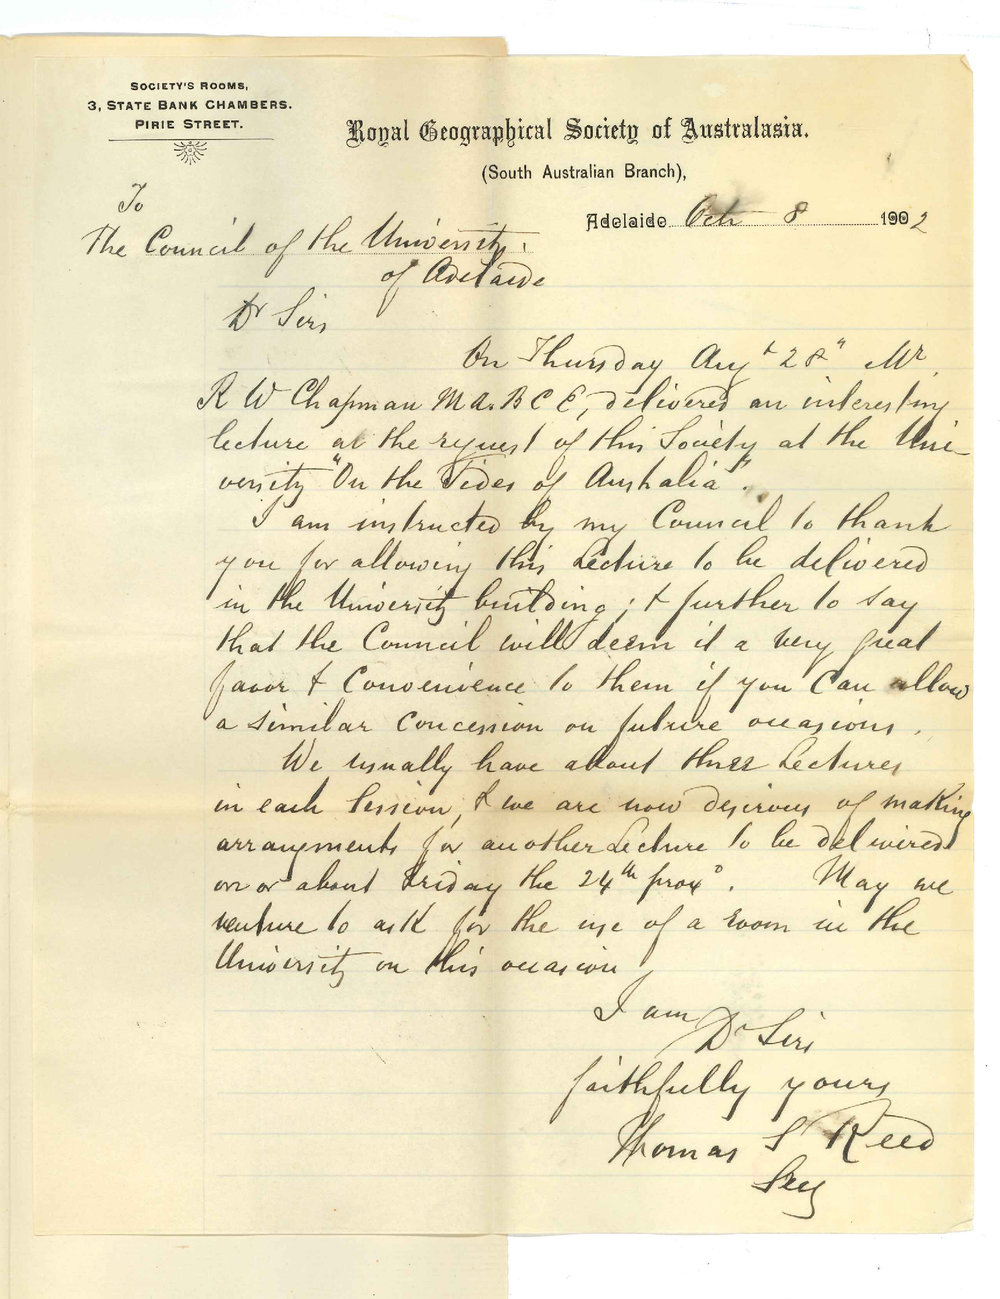 SOCIETY'S ROOMS,
3, STATE BANK CHAMBERS.
PIRIE STREET.
Royal Geographical Society of Australasia.
(South Australian Branch),
Adelaide Oct 8 1902
To
The Council of the University
of Adelaide
Dr Sirs
On Thursday Augt 28" Mr
R W Chapman M A. B C E, delivered an interesting
lecture at the request of this Society at the Uni-
versity "On the Tides of Australia".
I am instructed by my Council to thank
you for allowing this Lecture to be delivered
in the University building; & further to say
that the Council will deem it a very great
favor & convenience to them if you can allow
a similar concession on future occasions.
We usually have about three Lectures
in each Session, & we are now desirous of making
arrangements for another Lecture to be delivered
on or about Friday the 24th proxo. May we
venture to ask for the use of a room in the
University on this occasion
I am
Dr Sirs
faithfully yours
Thomas S Reed
Secy